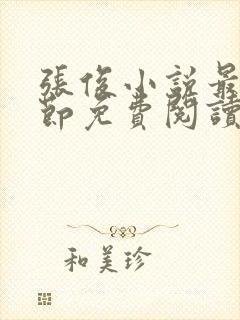 張俊小說最
節免費閱讀
和美珍